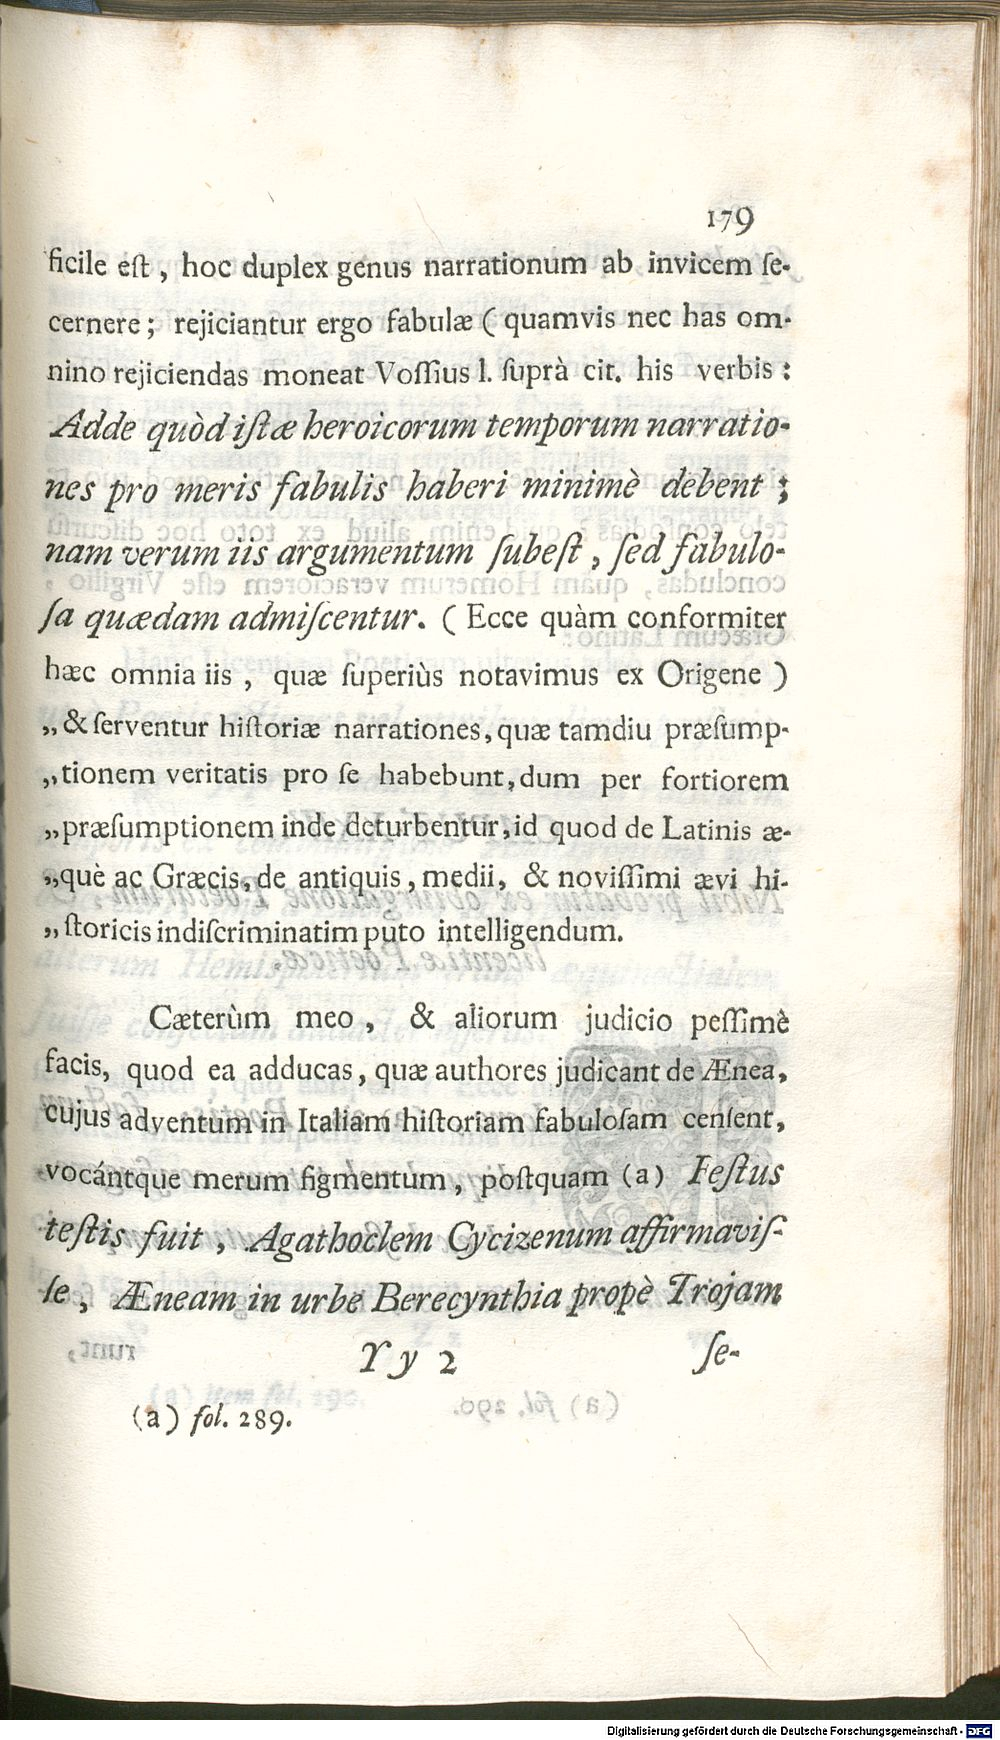 179
ficile est, hoc duplex genus narrationum ab invicem se-
cernere; rejiciantur ergo fabulæ (quamvis nec has om-
nino rejiciendas moneat Vossius l. suprà cit. his verbis:
Adde quòd istæ heroicorum temporum narratio-
nes pro meris fabulis haberi minimè debent;
nam verum iis argumentum subest, sed fabulo-
sa quædam admiscentur. (Ecce quàm conformiter
hæc omnia iis, quæ superiùs notavimus ex Origene)
„& serventur historiæ narrationes, quæ tamdiu præsump-
„tionem veritatis pro se habebunt, dum per fortiorem
„præsumptionem inde deturbentur, id quod de Latinis æ-
„què ac Græcis, de antiquis, medii, & novissimi ævi hi-
„storicis indiscriminatim puto intelligendum.
Cæterùm meo, & aliorum judicio pessimè
facis, quod ea adducas, quæ authores judicant de Ænea,
cujus adventum in Italiam historiam fabulosam censent,
vocántque merum figmentum, postquam (a) Festus
testis fuit, Agathoclem Cycizenum affirmavis-
se, Æneam in urbe Berecynthia propè Trojam
Yy 2 se-
(a) fol. 289.
Digitalisierung gefördert durch die Deutsche Forschungsgemeinschaft - DFG